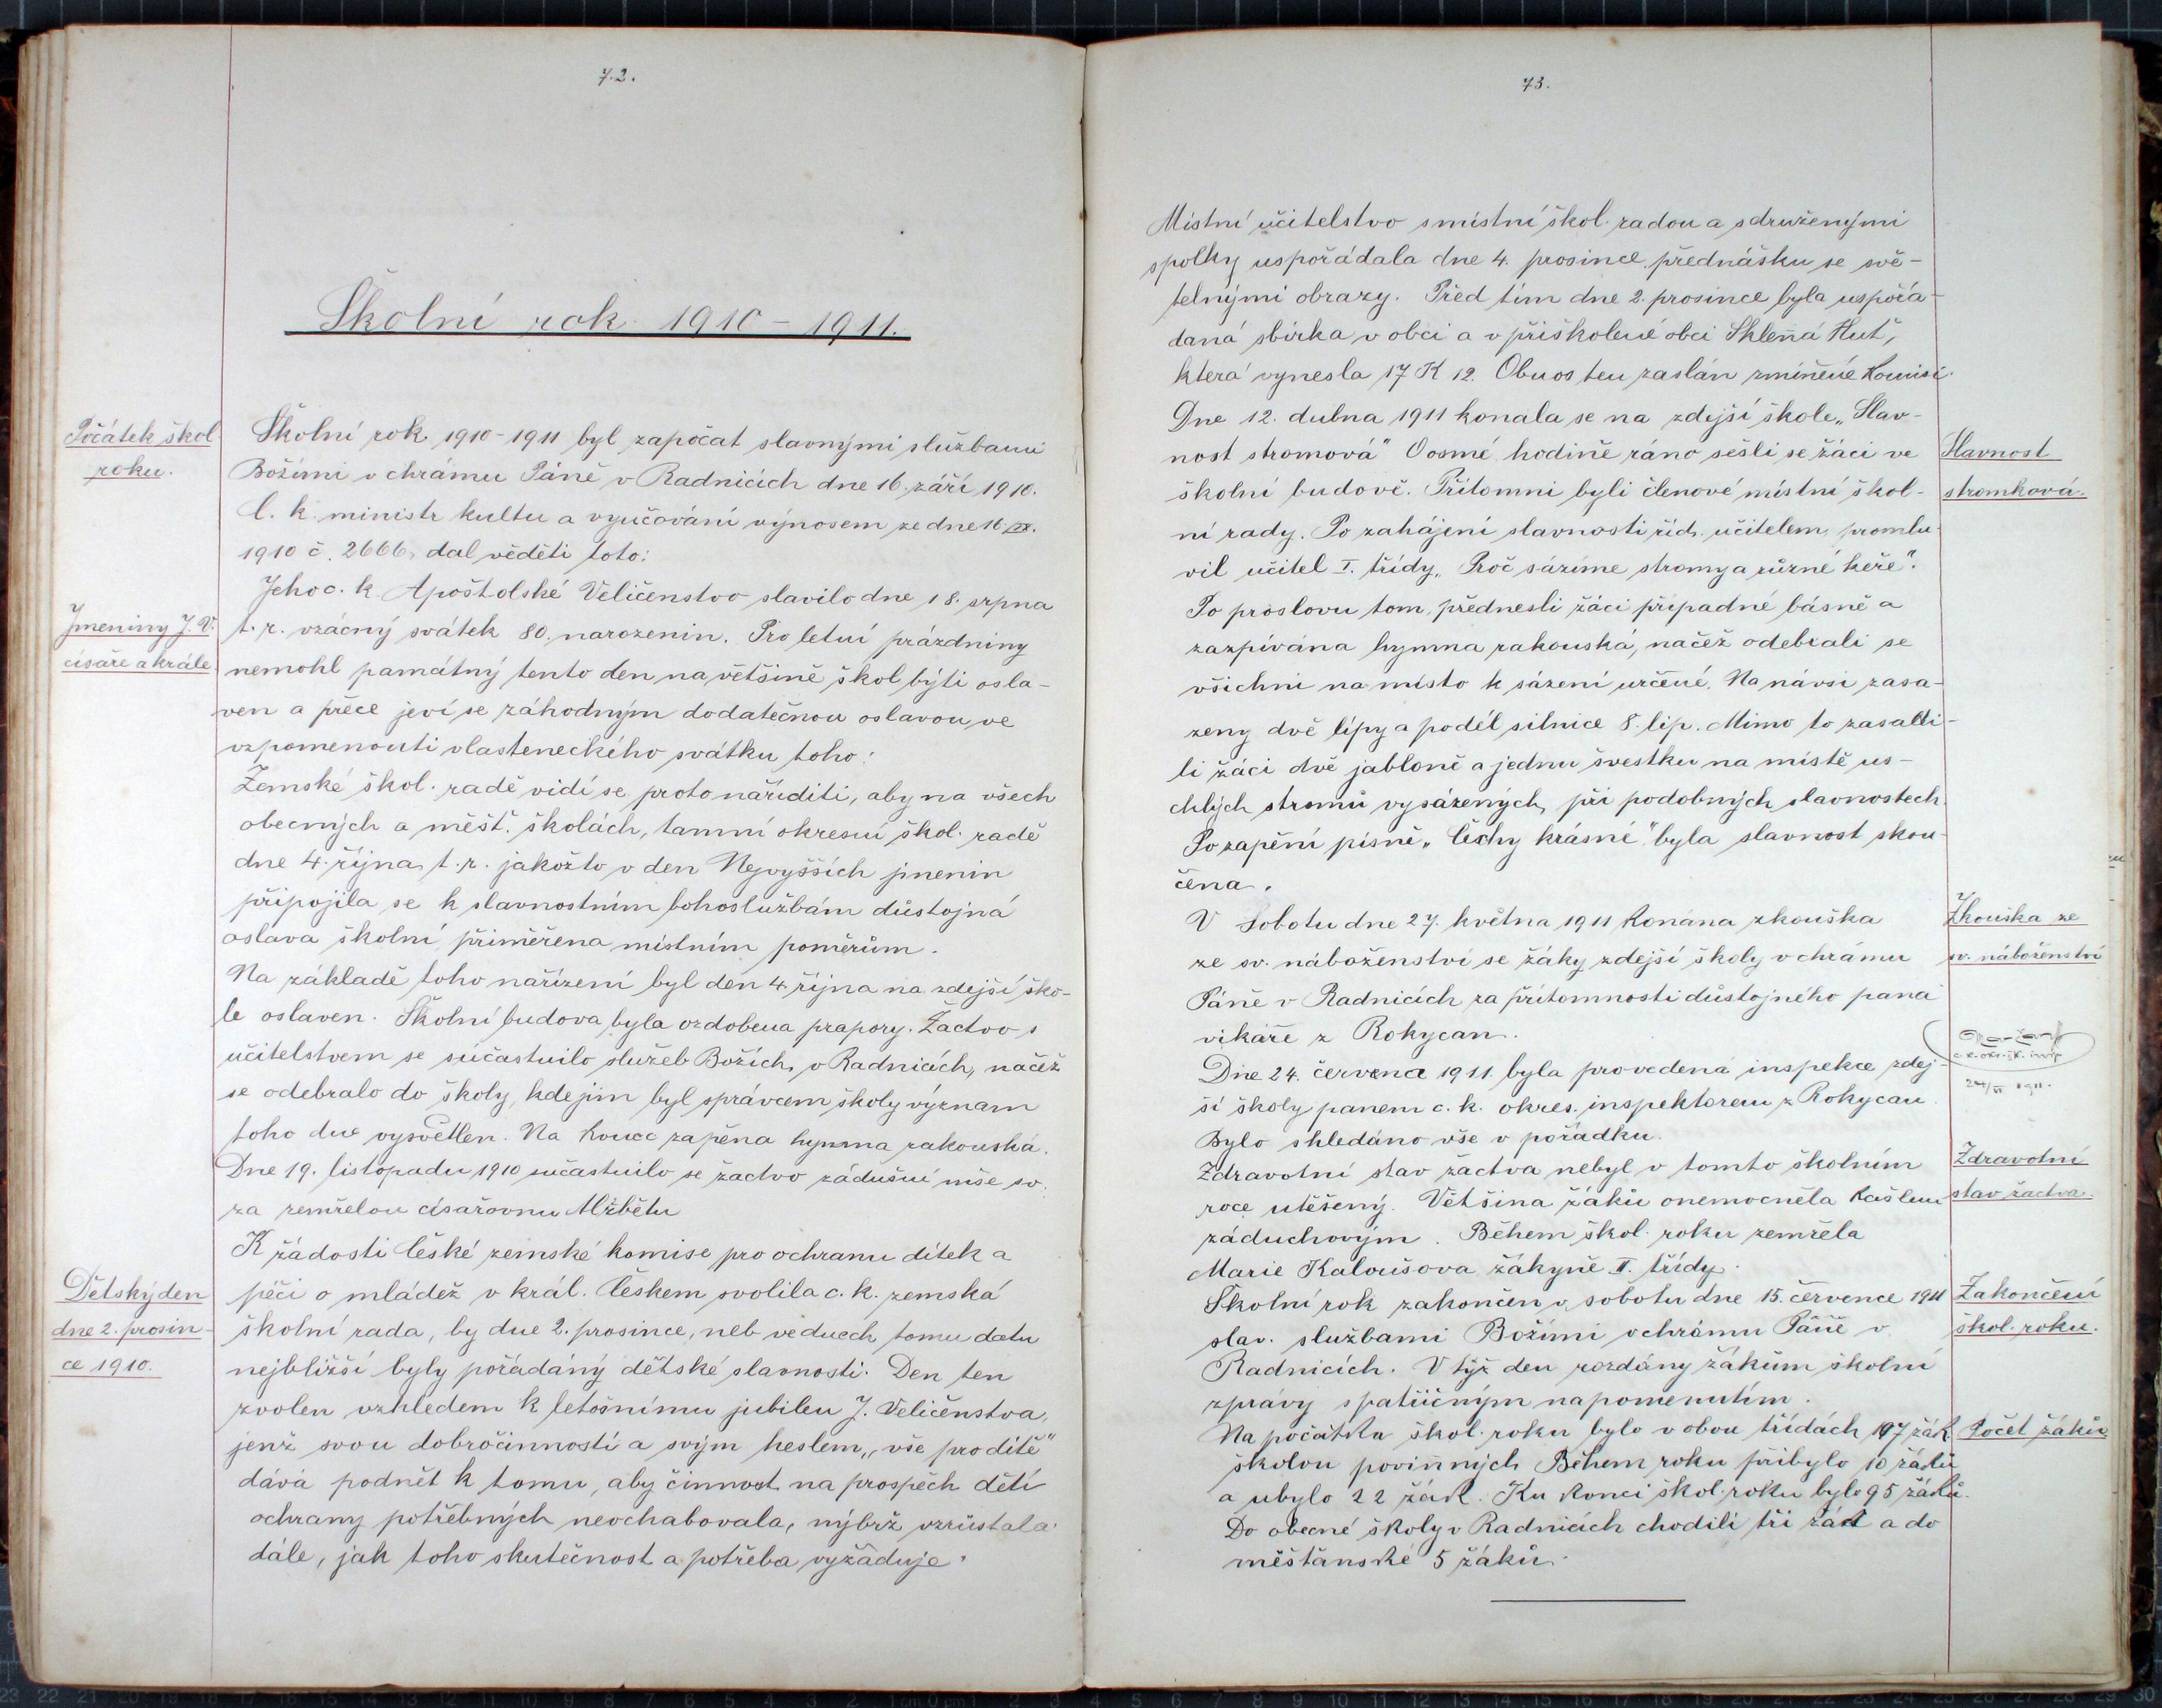 72.
Školní rok 1910 – 1911.
Počátek škol
roku.
Školní rok 1910-1911 byl započat slavnými službami
Božími v chrámu Páně v Radnicích dne 16. září 1910.
C. k. ministr kultu a vyučování výnosem ze dne 16/IX.
1910 č. 2666, dal věděti toto:
Jeho c. k. Apoštolské Veličenstvo slavilo dne 18. srpna
Jmeniny J. V.
císaře a krále
t. r. vzácný svátek 80. narozenin. Pro letní prázdniny
nemohl památný tento den na většině škol býti osla-
ven a přece jeví se záhodným dodatečnou oslavou ve
vzpomenouti vlasteneckého svátku toho:
Zemské škol. radě vidí se proto naříditi, aby na všech
obecných a měšť. školách, tamní okresní škol. radě
dne 4. října t. r. jakožto v den Nejvyšších jmenin
připojila se k slavnostním bohoslužbám důstojná
oslava školní přiměřena místním poměrům.
Na základě toho nařízení byl den 4 října na zdejší ško-
le oslaven. Školní budova byla ozdobena prapory. Žactvo s
učitelstvem se súčastnilo služeb Božích v Radnicích, načež
se odebralo do školy, kde jim byl správcem školy význam
toho dne vysvětlen. Na konec zapěna hymna rakouská.
Dne 19. listopadu 1910 súčastnilo se žactvo zádušní mše sv.
za zemřelou císařovnu Alžbětu
K žádosti České zemské komise pro ochranu dítek a
Dětský den
dne 2. prosin-
ce 1910.
péči o mládež v král. Českem svolila c. k. zemská
školní rada, by dne 2. prosince, neb ve dnech tomu datu
nejbližší byly pořádány dětské slavnosti. Den ten
zvolen vzhledem k letošnímu jubileu J. Veličenstva,
jenž svou dobročinností a svým heslem „vše pro dítě"
dává podnět k tomu, aby činnost na prospěch dětí
ochrany potřebných neochabovala, nýbrž vzrůstala
dále, jak toho skutečnost a potřeba vyžaduje.
73.
Místní učitelstvo s místní škol. radou a sdruženými
spolky uspořádala dne 4. prosince přednášku se svě-
telnými obrazy. Před tím dne 2. prosince byla uspořá-
daná sbírka v obci a v přiškolené obci Sklenná Huť,
která vynesla 17 K 12. Obnos ten zaslán zmíněné Komisi.
Dne 12. dubna 1911 konala se na zdejší škole „Slav-
nost stromová" O osmé hodině ráno sešli se žáci ve
Slavnost
stromková.
školní budově. Přítomni byli členové místní škol-
ní rady. Po zahájení slavnosti říd. učitelem, promlu-
vil učitel I. třídy „Proč sázíme stromy a různé keře".
Po proslovu tom, přednesli žáci případné básně a
zazpívána hymna rakouská, načež odebrali se
všichni na místo k sázení určené. Na návsi zasa-
zeny dvě lípy a podél silnice 8. lip. Mimo to zasadi-
li žáci dvě jabloně a jednu švestku na místě us-
chlých stromů vysázených, při podobných slavnostech.
Po zapění písně „Čechy krásné" byla slavnost skon-
čena.
V sobotu dne 27. května 1911 konána zkouška
Zkouška ze
sv. náboženství
ze sv. náboženství se žáky zdejší školy v chrámu
Páně v Radnicích za přítomnosti důstojného pana
vikáře z Rokycan.
c. k. okr. šk. insp.
24/VI 1911.
Dne 24. června 1911 byla provedená inspekce zdej-
ší školy panem c. k. okres. inspektorem z Rokycan
Bylo shledáno vše v pořádku.
Zdravotní stav žactva nebyl v tomto školním
Zdravotní
stav žactva.
roce utěšený. Většina žáků onemocněla kašlem
záduchovým. Během škol. roku zemřela
Marie Kaloušova žákyně II. třídy.
Školní rok zakončen v sobotu dne 15. července 1911
Zakončení
škol. roku.
slav. službami Božími v chrámu Páně v
Radnicích. V týž den rozdány žákům školní
zprávy s patřičným napomenutím.
Na počátku škol. roku bylo v obou třídách 107 žák.
Počet žáků
školou povinných Během roku přibylo 10 žáků
a ubylo 22 žák. Ku konci škol. roku bylo 95 žáků.
Do obecné školy v Radnicích chodili tři žáci a do
měšťanské 5 žáků.